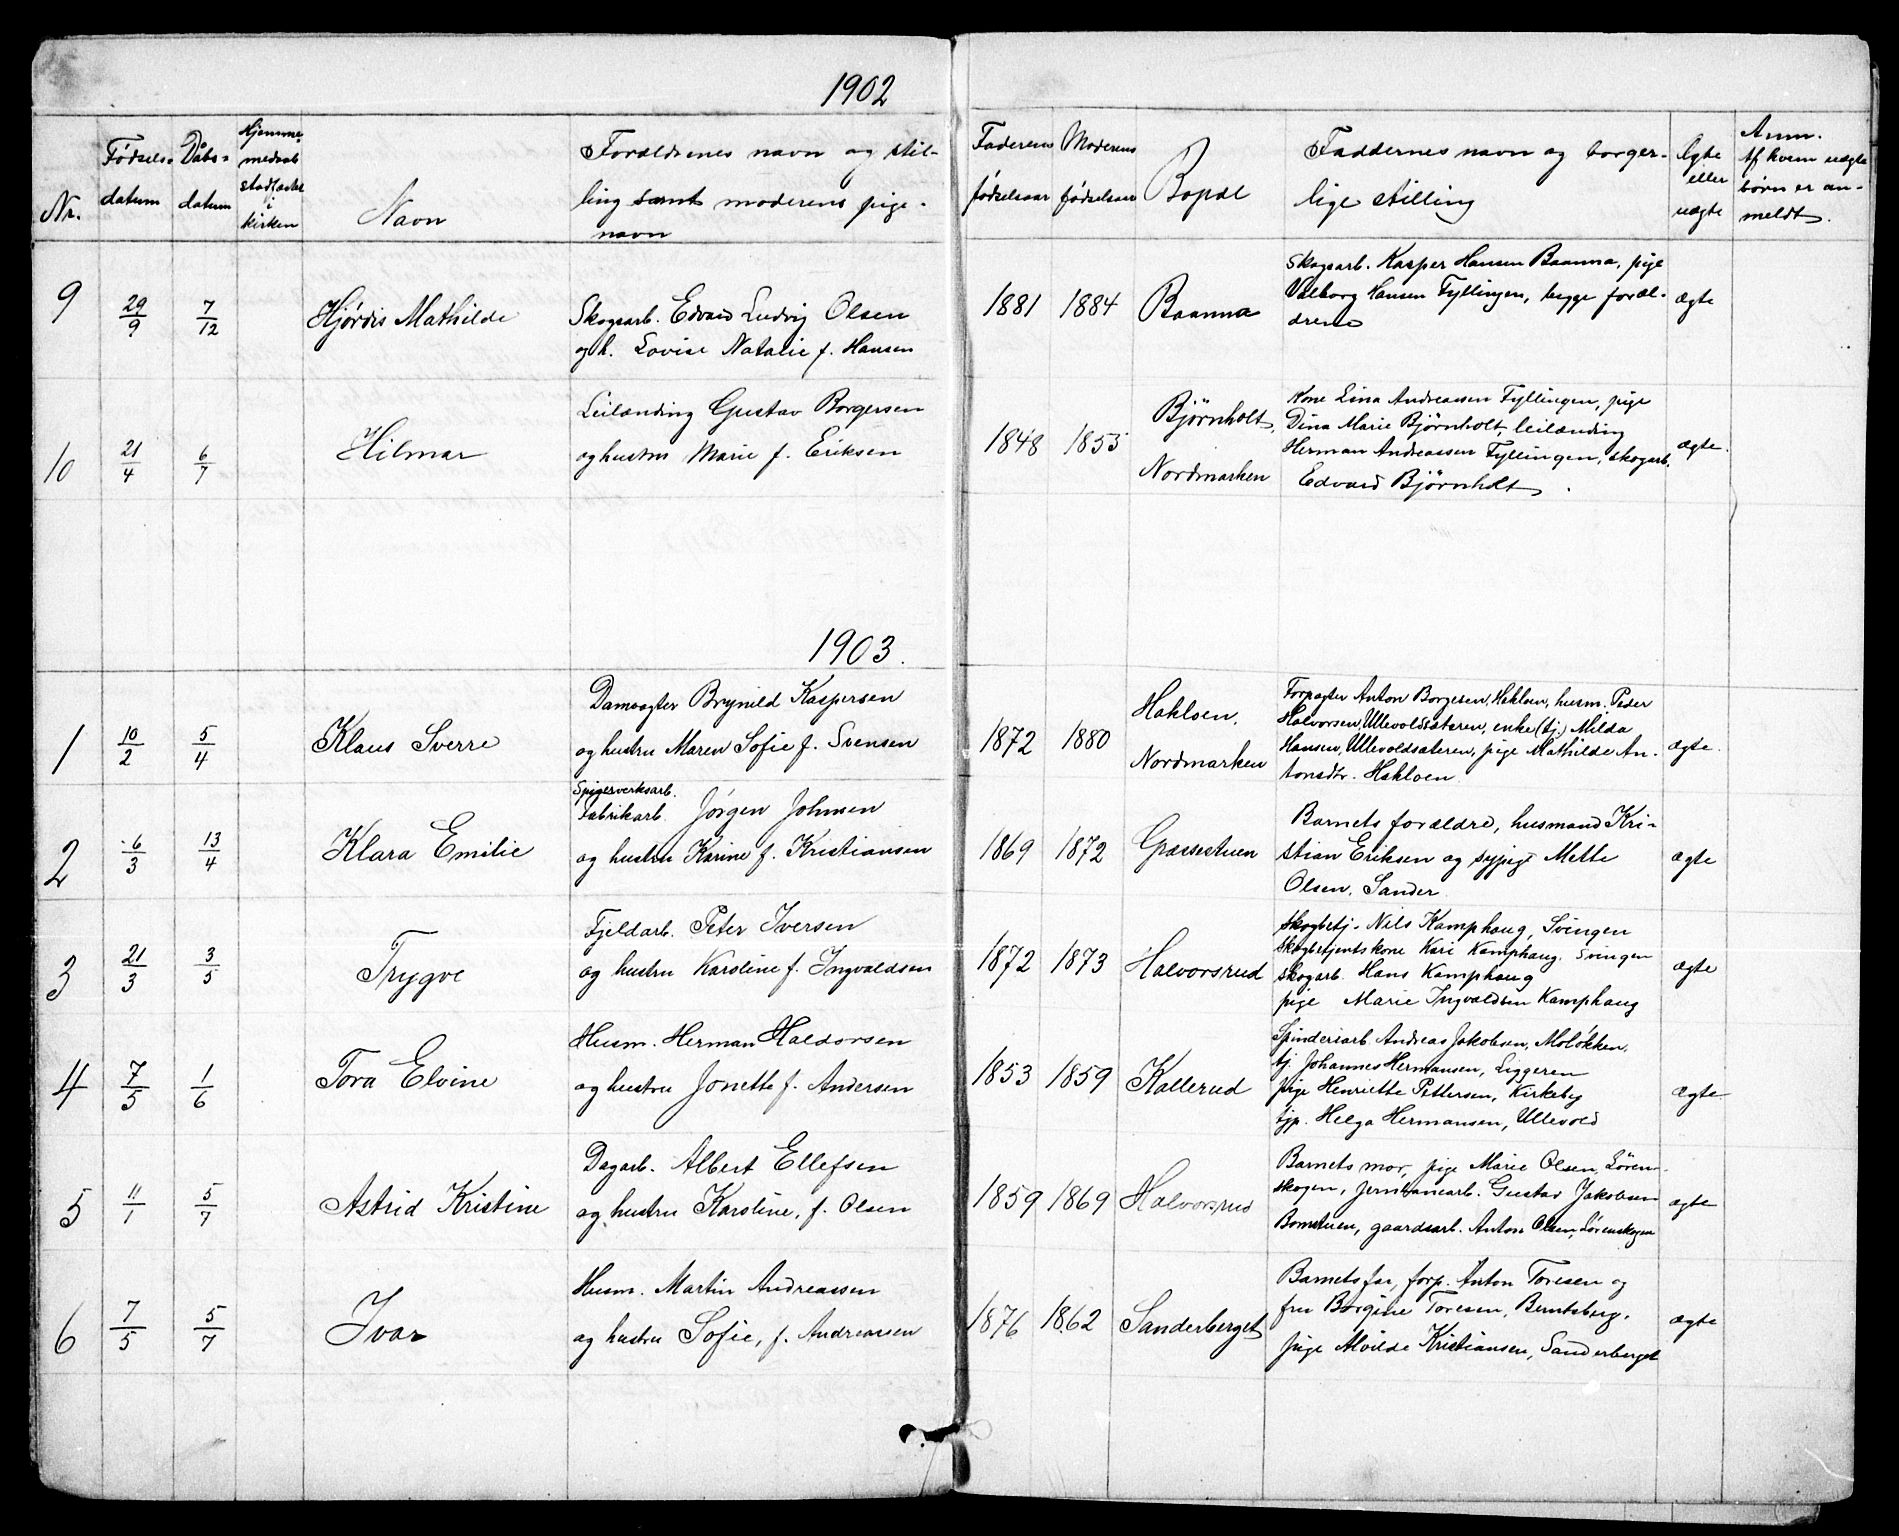 1902
Nr.
Fødsels-
datum
Dåbs-
datum
Hjemme
medsat
stadfæstet
i
kirken
Navn
Forældrenes navn og stil-
ling samt moderens pige-
navn
Faderens
fødselsaar
Moderens
fødselsaar
Bopæl
Faddernes navn og borger-
lige stilling
Ægte
eller
uægte
Anm.
Af hvem uægte
børn er an-
meldt.
9
29/9
7/12
Hjørdis Mathilde
Skogsarb. Edvard Ludvig Olsen
og h. Lovise Natalie f. Hansen
1881
1884
Baanna
Skogsarb. Kasper Hansen Baanna, pige
Valborg Hansen Fyllingen, begge foræl-
drene
ægte
10
21/4
6/7
Hilmar
Leilænding Gustav Borgersen
og hustru Marie f. Eriksen
1848
1853
Bjørnholt,
Nordmarken
Kone Lina Andreassen Fyllingen, pige
Dina Marie Bjørnholt, leilænding
Herman Andreassen Fyllingen, skogarb.
Edvard Bjørnholt
ægte.
1903.
1
10/2
5/4
Klaus Sverre
Damvogter Brynild Kaspersen
og hustru Maren Sofie f. Svensen
1872
1880
Hakloen.
Nordmarken
Forpagter Anton Borgesen, Hakloen, husm. Peder
Halvorsen, Ullevoldsæteren, enke (tj.) Milda
Hansen, Ullevoldsæteren, pige Mathilde An-
tonsdtr. Hakloen
ægte.
2
6/3
13/4
Klara Emilie
Spigerverksarb.
Fabrikarb. Jørgen Johnsen
og hustru Karine f. Kristiansen
1869
1872
Græssestuen
Barnets forældre, husmand Kri-
stian Eriksen og sypige Mette
Olsen. Sander
ægte
3
21/3
3/5
Trygve
Fjeldarb. Peter Iversen
og hustru Karoline f. Ingvaldsen
1872
1873
Halvorsrud
Skogbetj. Nils Kamphaug, Svingen
Skogbetjents kone Kari Kamphaug. Svingen
Skogarb. Hans Kamphaug
pige Marie Ingvaldsen Kamphaug
ægte
4
7/5
1/6
Tora Elvine
Husm. Herman Haldorsen
og hustru Jonette f. Andersen
1853
1859
Kallerud
Spinderiarb Andreas Jakobsen, Moløkken,
tj. Johannes Hermansen, Liggeren
pige Henriette Pettersen, Kirkeby
tjp. Helga Hermansen, Ullevold
Ægte
5
11/1
5/7
Astrid Kristine
Dagarb. Albert Ellefsen
og hustru Karoline, f. Olsen
1859
1869
Halvorsrud
Barnets mor, pige Marie Olsen, Sören-
skogen, jernbanearb. Gustav Jakobsen
Bomstuen, gaardsarb. Anton Olsen, Sörenskogen
ægte
6
7/5
5/7
Ivar
Husm. Martin Andreassen
og hustru Sofie, f. Andreasen
1876
1862
Sanderberget
Barnets far, forp. Anton Toresen og
fru Borgine Toresen, Berntsberg,
pige Alvilde Kristiansen, Sanderberget
ægte